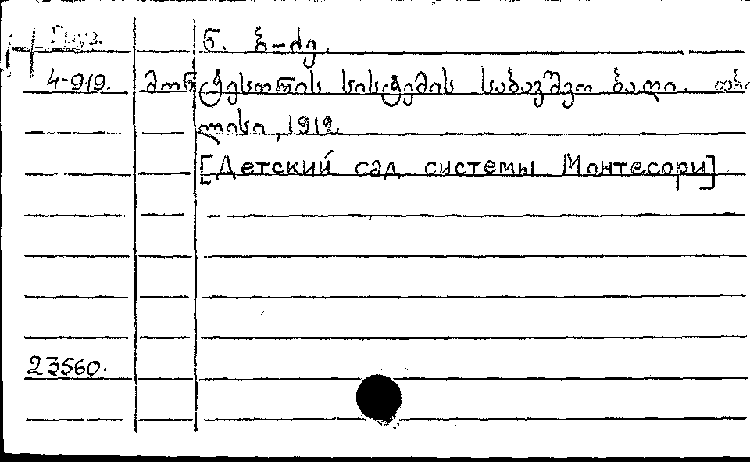 Груз. ნ. ზ-ძე.
4-919. მონტესორის სისტემის საბავშვო ბაღი. თბი
ლისი, 1912.
[Детский сад системы Монтесори]
23560.